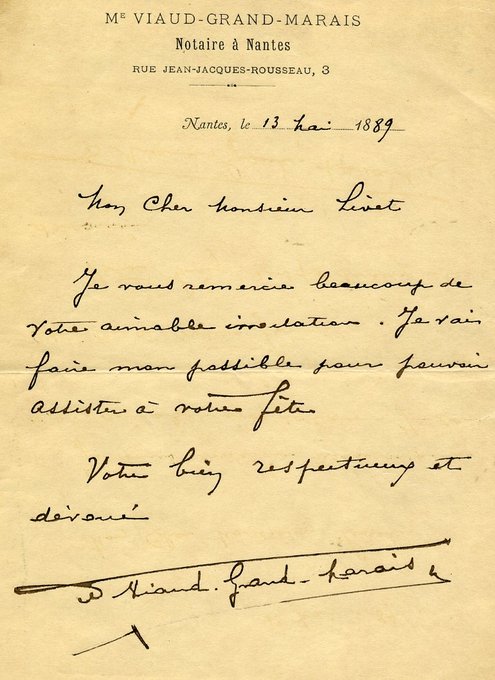 Me VIAUD-GRAND-MARAIS
Notaire à Nantes
RUE JEAN-JACQUES-ROUSSEAU, 3
Nantes, le 13 Mai 1889
Mon Cher Monsieur Livet
Je vous remercie beaucoup de
votre aimable invitation. Je vais
faire mon possible pour pouvoir
assister à votre fête
Votre bien respectueux et
dévoué
Viaud-Grand-Marais